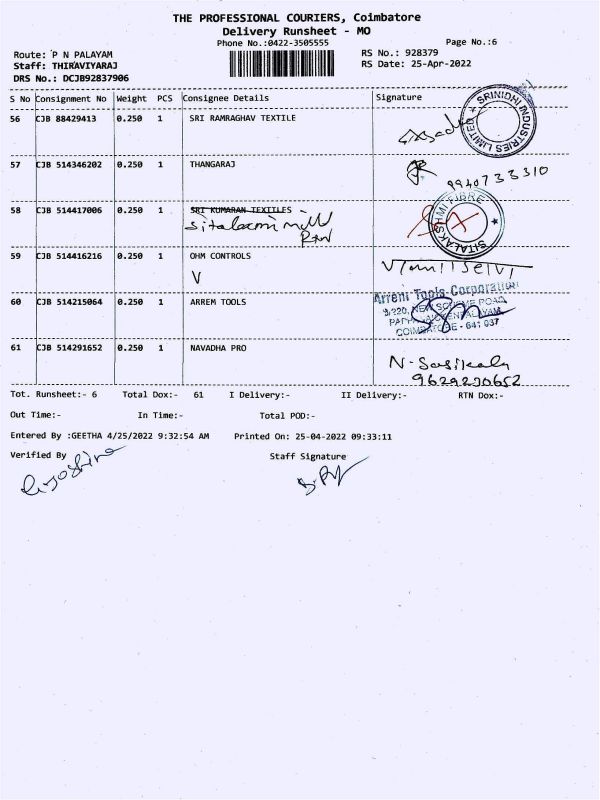 THE PROFESSIONAL COURIERS, Coimbatore
Delivery Runsheet - MO
Phone No.:0422-3505555
Page No.:6
Route: P N PALAYAM
RS No.: 928379
Staff: THIRAVIYARAJ
RS Date: 25-Apr-2022
DRS No.: DCJB92837906
S No Consignment No Weight PCS Consignee Details Signature
56 CJB 88429413 0.250 1 SRI RAMRAGHAV TEXTILE
SRINIDHI INDUSTRIES LIMITED
57 CJB 514346202 0.250 1 THANGARAJ
9940733310
58 CJB 514417006 0.250 1 SRI KUMARAN TEXTILES
Sitalaxmi mill
SITALAKSHMI FIBRE
59 CJB 514416216 0.250 1 OHM CONTROLS
V
VTamilselvi
60 CJB 514215064 0.250 1 ARREM TOOLS
Arrem Tools Corporation
COIMBATORE - 641 037
61 CJB 514291652 0.250 1 NAVADHA PRO
N-Sasikala
9629230652
Tot. Runsheet:- 6 Total Dox:- 61 I Delivery:- II Delivery:- RTN Dox:-
Out Time:- In Time:- Total POD:-
Entered By :GEETHA 4/25/2022 9:32:54 AM Printed On: 25-04-2022 09:33:11
Verified By Staff Signature